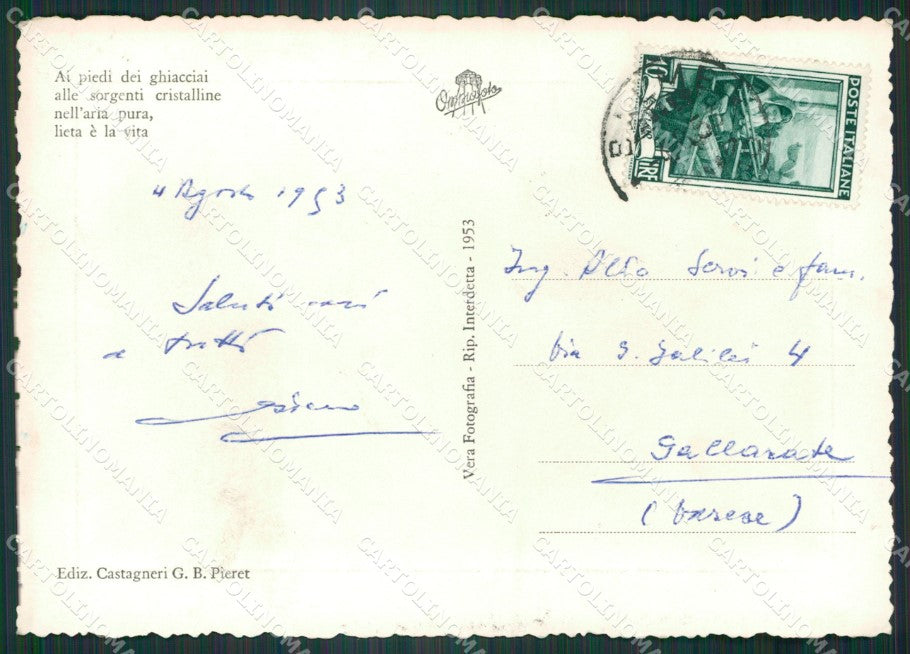 Ai piedi dei ghiacciai
alle sorgenti cristalline
nell'aria pura,
lieta è la vita
4 Agosto 1953
Saluti cari
a tutti
Ediz. Castagneri G. B. Pieret
Vera Fotografia - Rip. Interdetta - 1953
10 LIRE
POSTE ITALIANE
Ing. Servi e fam.
Via G. Galilei 4
Gallarate
(Varese)
CARTOLINOMANIA